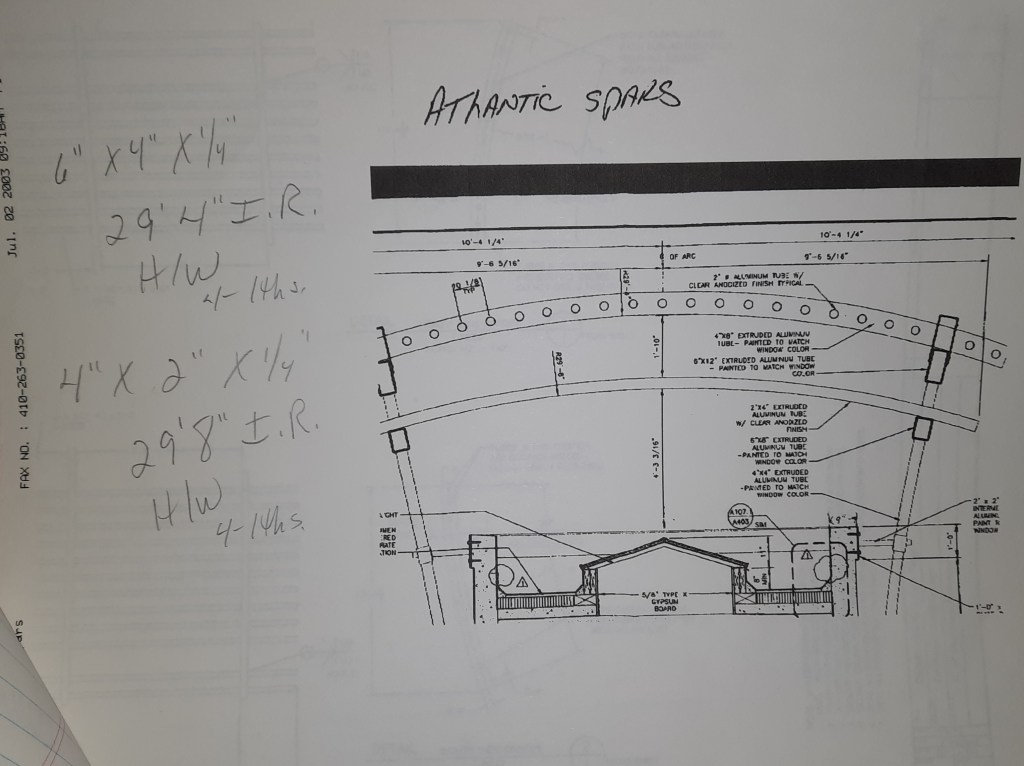 ATLANTIC SPARS
Jul. 02 2003
FAX NO. : 410-263-0351
6" X 4" X 1/4"
29' 4" I.R.
H/W
4-14hs.
4" X 2" X 1/4"
29' 8" I.R.
H/W
4-14hs.
10'-4 1/4"
10'-4 1/4"
OF ARC
9'-6 5/16"
9'-6 5/16"
TYP
2" ø ALUMINUM TUBE W/
CLEAR ANODIZED FINISH TYPICAL
4"X8" EXTRUDED ALUMINUM
TUBE- PAINTED TO MATCH
WINDOW COLOR
6"X12" EXTRUDED ALUMINUM TUBE
- PAINTED TO MATCH WINDOW
COLOR
1'-10"
R29'-8"
2"X4" EXTRUDED
ALUMINUM TUBE
W/ CLEAR ANODIZED
FINISH
6"X8" EXTRUDED
ALUMINUM TUBE
-PAINTED TO MATCH
WINDOW COLOR
4"X4" EXTRUDED
ALUMINUM TUBE
-PAINTED TO MATCH
WINDOW COLOR
4'-3 3/16"
A107
A403
SIM
IGHT
MEN
RED
RATE
TION
9"
2" x 2"
INTERNE
ALUMINU
PAINT T
WINDOW
1'-0"
11"
8"
MIN
5/8" TYPE X
GYPSUM
BOARD
1'-0" x
ars